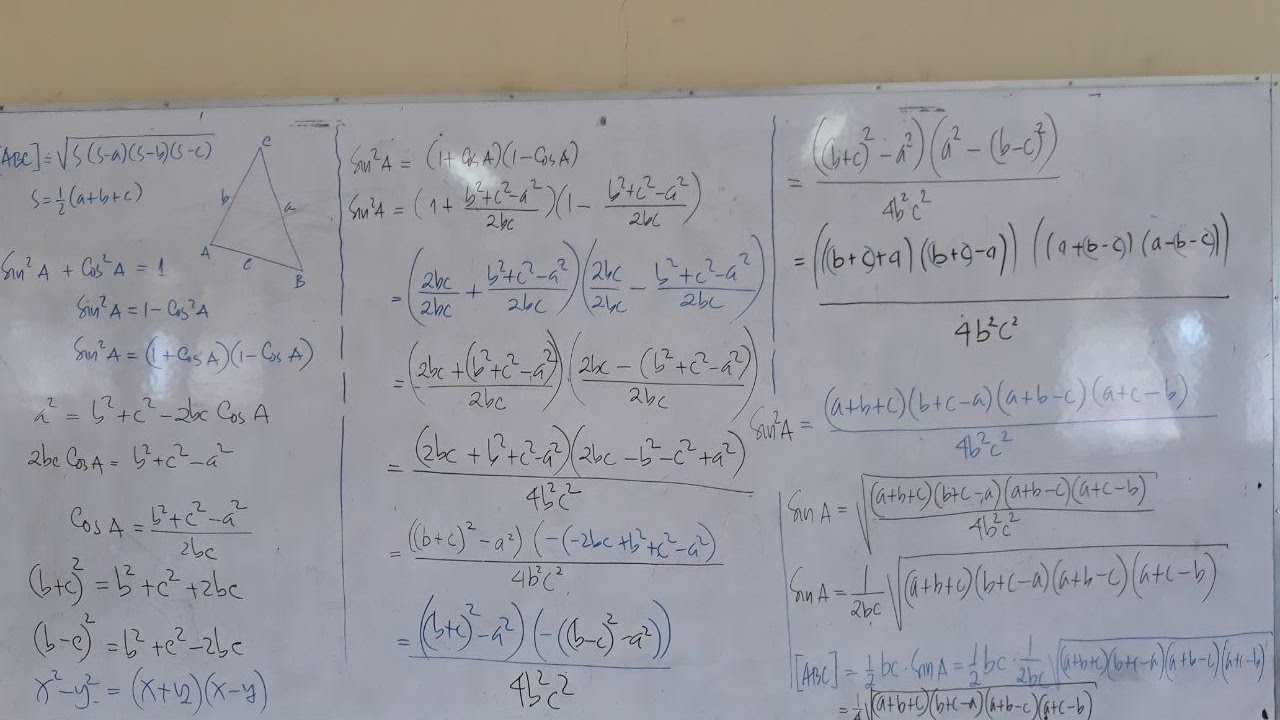 [ABC] = √(s(s-a)(s-b)(s-c))
s = ½(a+b+c)
C
b
a
A
c
B
Sin²A + Cos²A = 1
Sin²A = 1 - Cos²A
Sin²A = (1+Cos A)(1-Cos A)
a² = b²+c²-2bc Cos A
2bc Cos A = b²+c²-a²
Cos A = (b²+c²-a²)/2bc
(b+c)² = b²+c²+2bc
(b-c)² = b²+c²-2bc
x²-y² = (x+y)(x-y)
Sin²A = (1+Cos A)(1-Cos A)
Sin²A = (1 + (b²+c²-a²)/2bc)(1 - (b²+c²-a²)/2bc)
= (2bc/2bc + (b²+c²-a²)/2bc)(2bc/2bc - (b²+c²-a²)/2bc)
= ((2bc+(b²+c²-a²))/2bc)·((2bc-(b²+c²-a²))/2bc)
= (2bc+b²+c²-a²)(2bc-b²-c²+a²)/4b²c²
= ((b+c)²-a²)(-(-2bc+b²+c²-a²)/4b²c²
= ((b+c)²-a²)(-((b-c)²-a²))/4b²c²
= ((b+c)²-a²)(a²-(b-c)²)/4b²c²
= (((b+c)+a)((b+c)-a))((a+(b-c))(a-(b-c)))/4b²c²
Sin²A = (a+b+c)(b+c-a)(a+b-c)(a+c-b)/4b²c²
Sin A = √((a+b+c)(b+c-a)(a+b-c)(a+c-b)/4b²c²)
Sin A = 1/2bc √((a+b+c)(b+c-a)(a+b-c)(a+c-b))
[ABC] = ½bc·Sin A = ½bc·1/2bc √((a+b+c)(b+c-a)(a+b-c)(a+c-b))
= ¼√((a+b+c)(b+c-a)(a+b-c)(a+c-b))